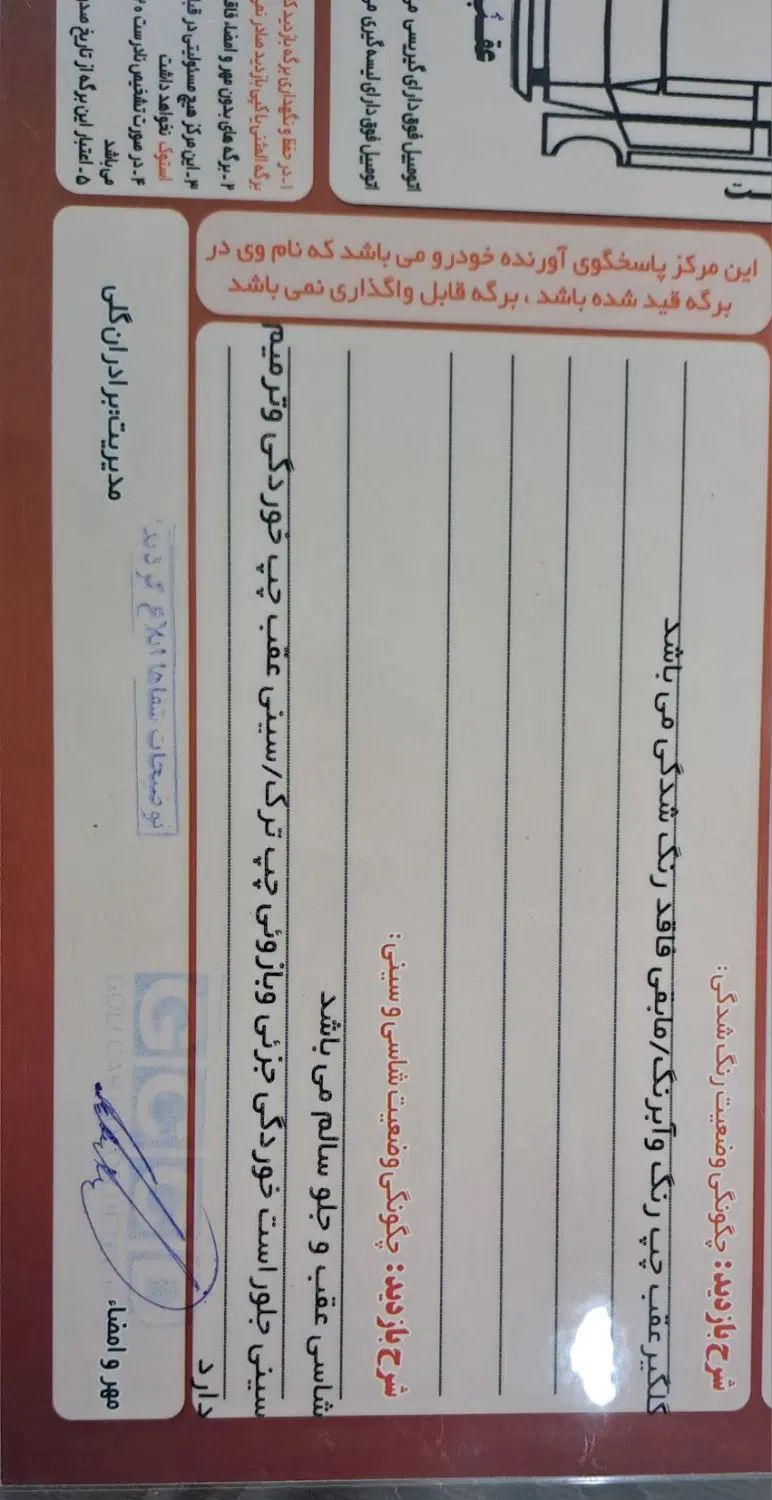 عقب
اتومبیل فوق دارای گیربسی
اتومبیل فوق دارای لیسه گیری
۱-در حفظ و نگهداری برگه بازدید
برگه المثنی یا کپی بازدید صادر
۲-برگه های بدون مهر و امضاء
۳-این مرکز هیچ مسئولیتی در
استوک نخواهد داشت
۴-در صورت تشخیص نادرست
می باشد
۵-اعتبار این برگه از تاریخ
این مرکز پاسخگوی آورنده خودرو می باشد که نام وی در
برگه قید شده باشد ، برگه قابل واگذاری نمی باشد
شرح بازدید: چگونگی وضعیت رنگ شدگی:
گلگیر عقب چپ رنگ وآبرنگ/مابقی فاقد رنگ شدگی می باشد
شرح بازدید: چگونگی وضعیت شاسی و سینی:
شاسی عقب و جلو سالم می باشد
سینی جلو راست خوردگی جزئی وبازوئی چپ ترک/سینی عقب چپ خوردگی وترمیم
دارد
مهر و امضاء
توضیحات شفاها ابلاغ گردید
مدیریت:برادران گلی